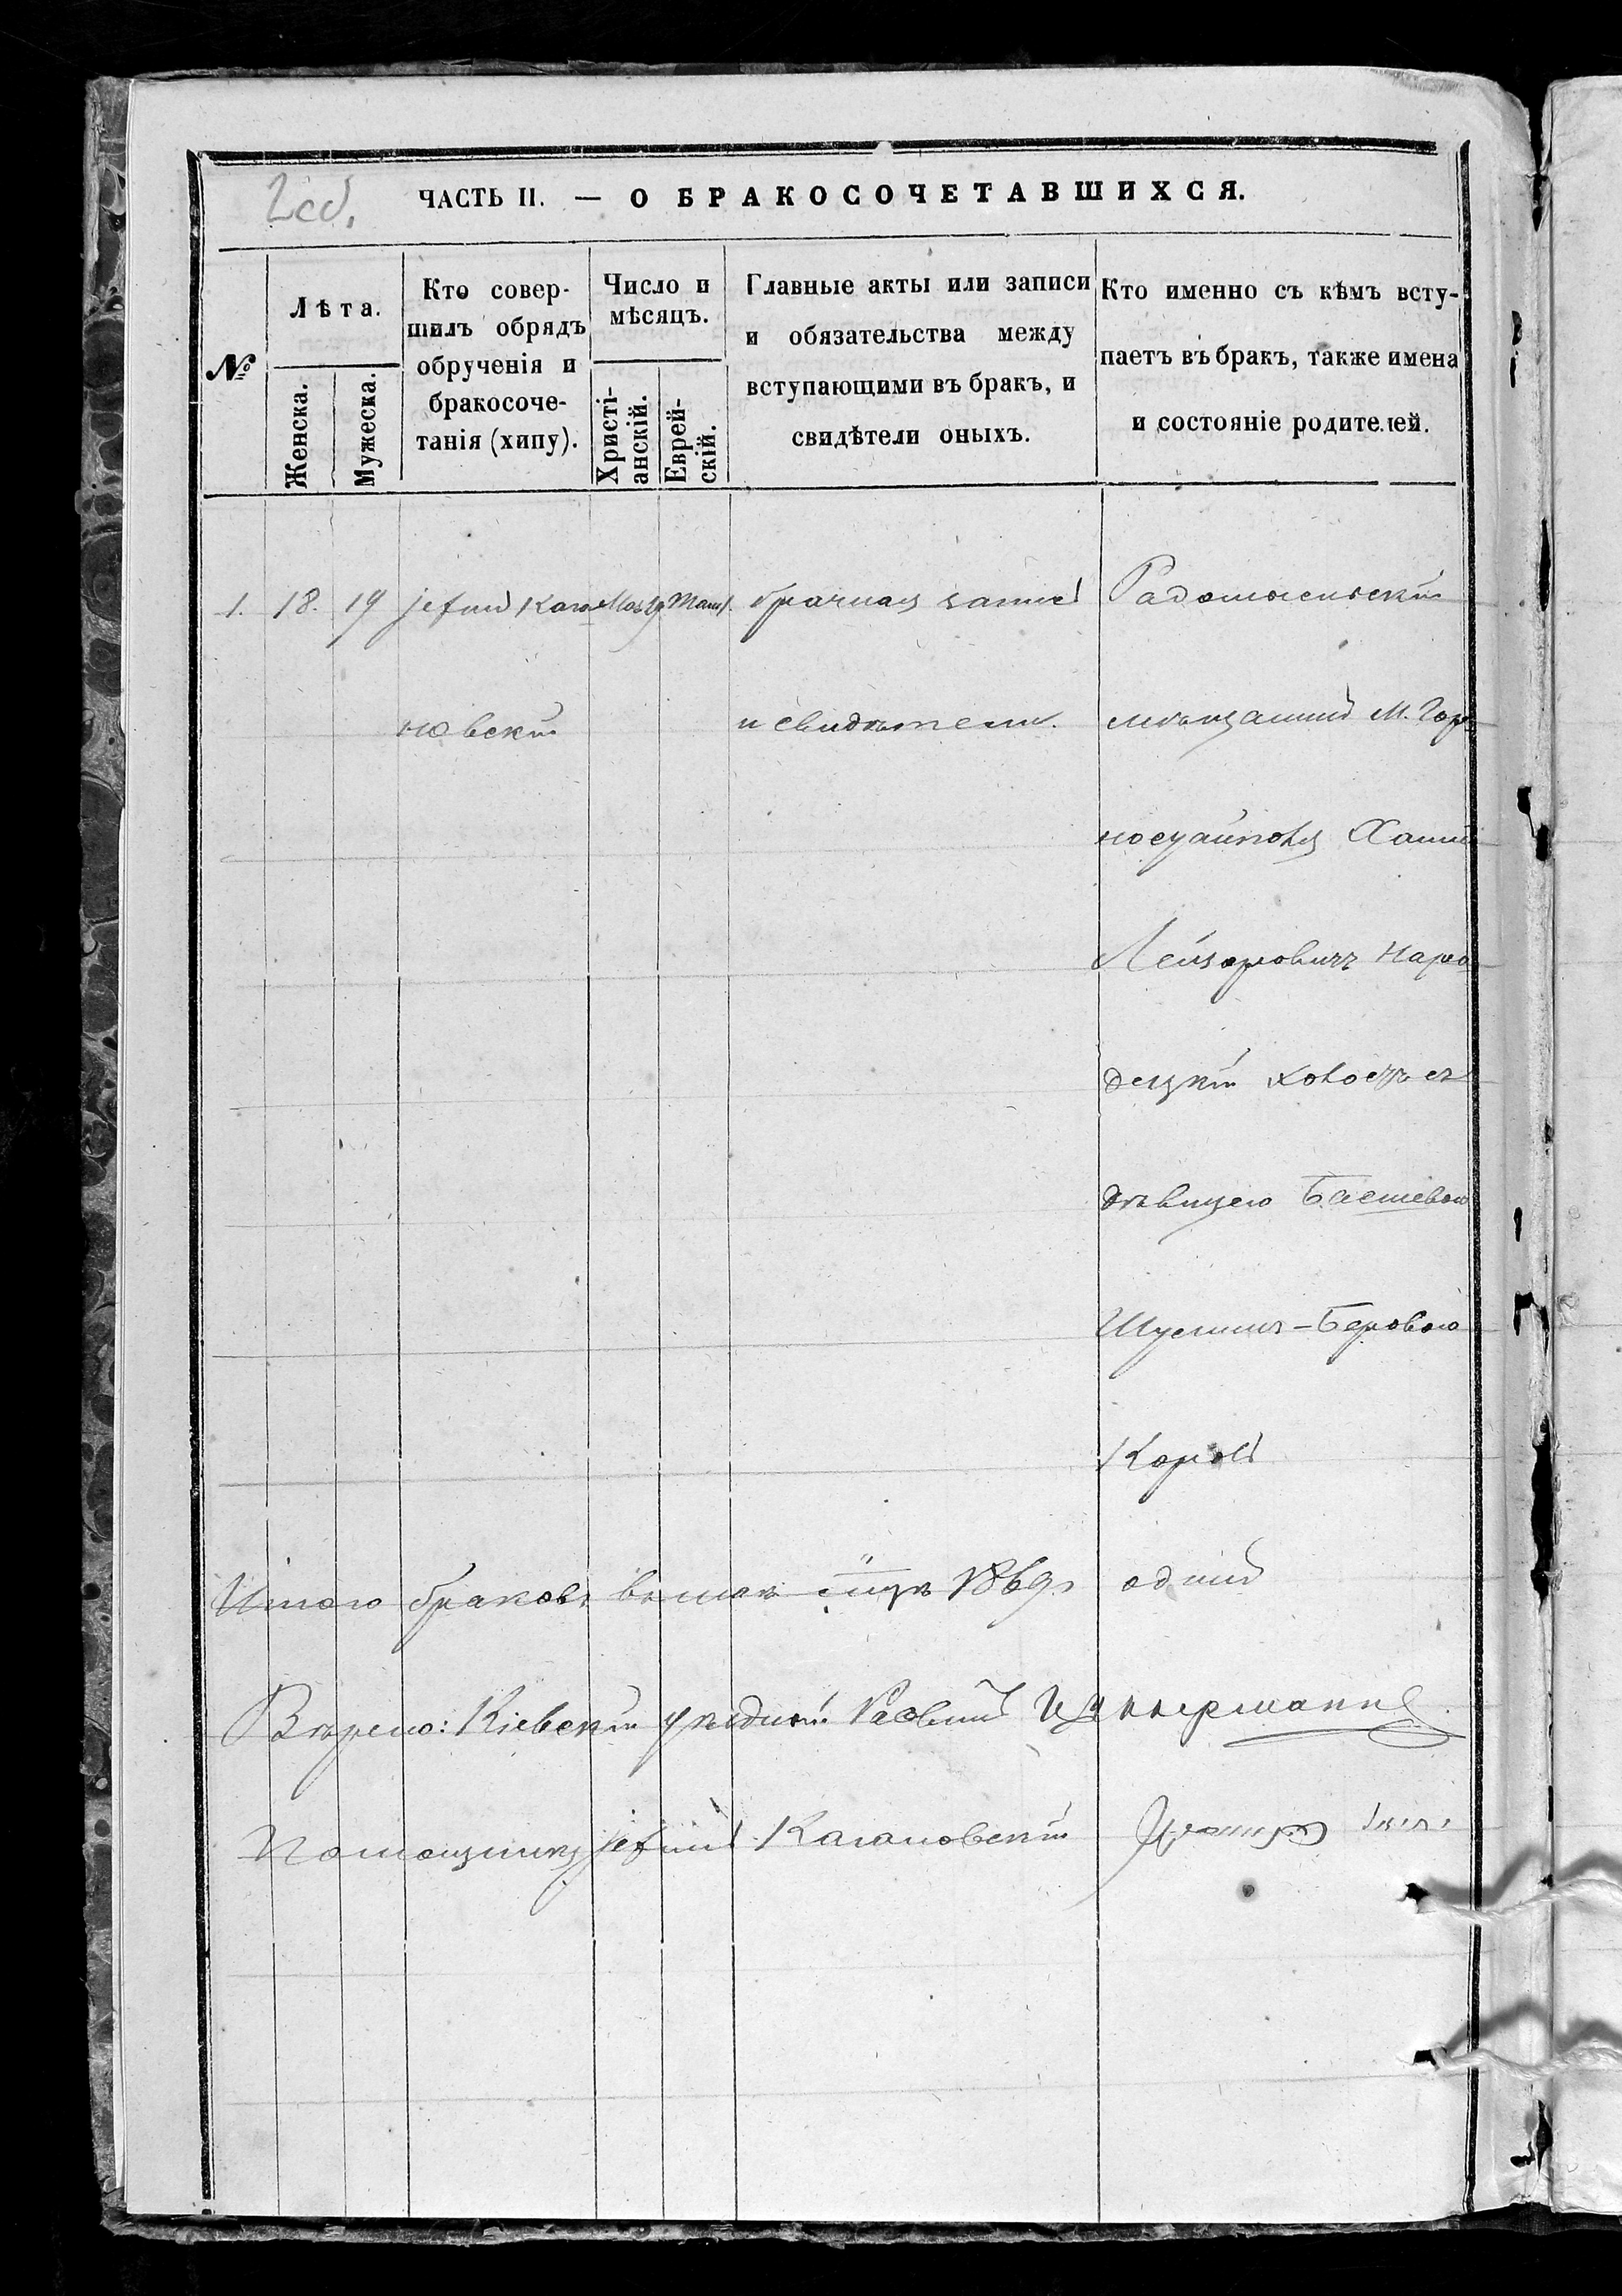 ЧАСТЬ II. — О БРАКОСОЧЕТАВШИХСЯ.
№
Лѣта.
Женска.
Мужеска.
Кто совер-
шилъ обрядъ
обрученія и
бракосоче-
танія (хипу).
Число и
мѣсяцъ.
Христі-
анскій.
Еврей-
скій.
Главные акты или записи
и обязательства между
вступающими въ бракъ, и
свидѣтели оныхъ.
Кто именно съ кѣмъ всту-
паетъ въ бракъ, также имена
и состояніе родителей.
1. 18. 19 Јефим Кага брачная запись Радомысльскій
новскій и свидѣтели. мѣщанинъ М. Гор
Хаимъ
Лейзоровичъ Наро
децкій холостъ съ
дѣвицею Басшевою
Шулимъ-Беровою
Король
Итого браковъ въ маѣ мцѣ 1869 одинъ
Вѣрно: Кіевскій уѣздный Раввинъ Цуккерманъ
Помощникъ Јефимъ Кагановскій